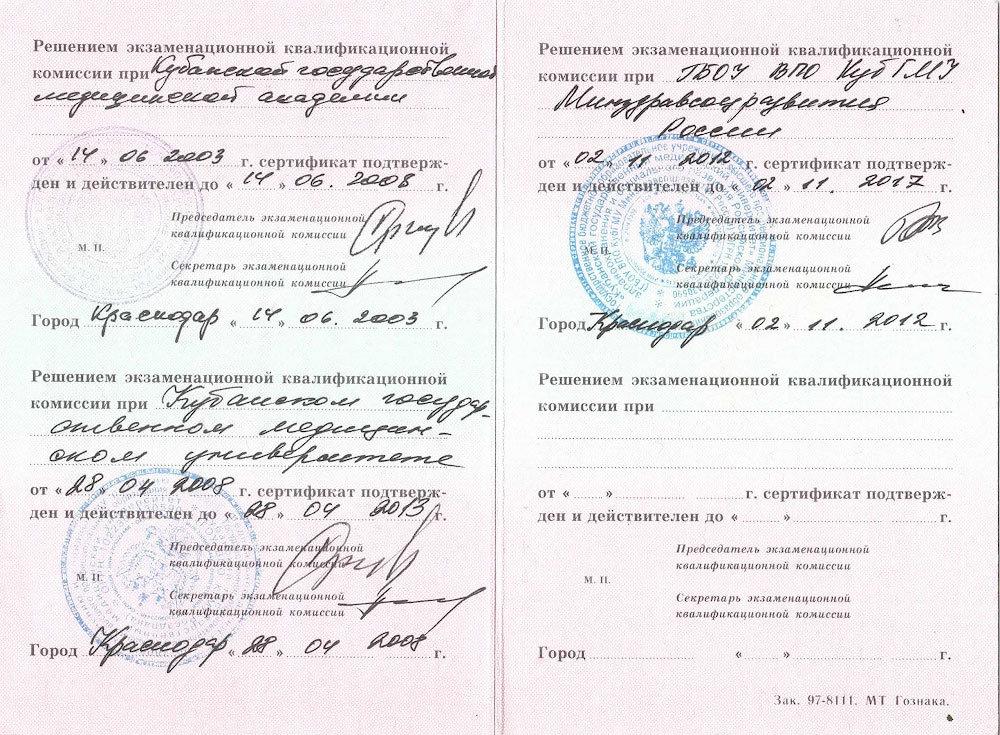 Решением экзаменационной квалификационной
комиссии при Кубанской государственной
медицинской академии
от « 14 » 06 2003 г. сертификат подтверж-
ден и действителен до « 14 » 06. 2008 г.
Председатель экзаменационной
квалификационной комиссии
М. П.
Секретарь экзаменационной
квалификационной комиссии
Город Краснодар « 14 » 06. 2003 г.
Решением экзаменационной квалификационной
комиссии при Кубанском государ-
ственном медицин-
ском университете
от « 28 » 04 2008 г. сертификат подтверж-
ден и действителен до « 28 » 04 2013 г.
Председатель экзаменационной
квалификационной комиссии
М. П.
Секретарь экзаменационной
квалификационной комиссии
Город Краснодар « 28 » 04 2008 г.
Решением экзаменационной квалификационной
комиссии при ГБОУ ВПО КубГМУ
Минздравсоцразвития
России
от « 02 » 11 2012 г. сертификат подтверж-
ден и действителен до « 02 » 11. 2017 г.
Председатель экзаменационной
квалификационной комиссии
М. П.
Секретарь экзаменационной
квалификационной комиссии
Город Краснодар « 02 » 11. 2012 г.
Решением экзаменационной квалификационной
комиссии при
от « » г. сертификат подтверж-
ден и действителен до « » г.
Председатель экзаменационной
квалификационной комиссии
М. П.
Секретарь экзаменационной
квалификационной комиссии
Город « » г.
Зак. 97-8111. МТ Гознака.